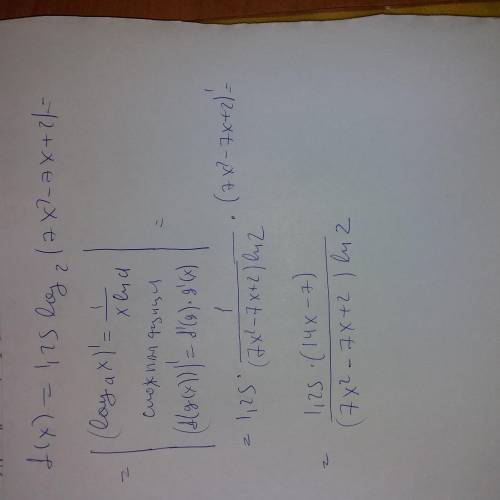 f(x) = 1,25 log₂ (7x²-7x+2)=
= | (logₐ x)' = 1/(x ln a)
сложная функция
(f(g(x)))' = f'(g)·g'(x) | =
= 1,25 · 1/((7x²-7x+2) ln 2) · (7x²-7x+2)' =
= 1,25 · (14x-7)/((7x²-7x+2) ln 2)